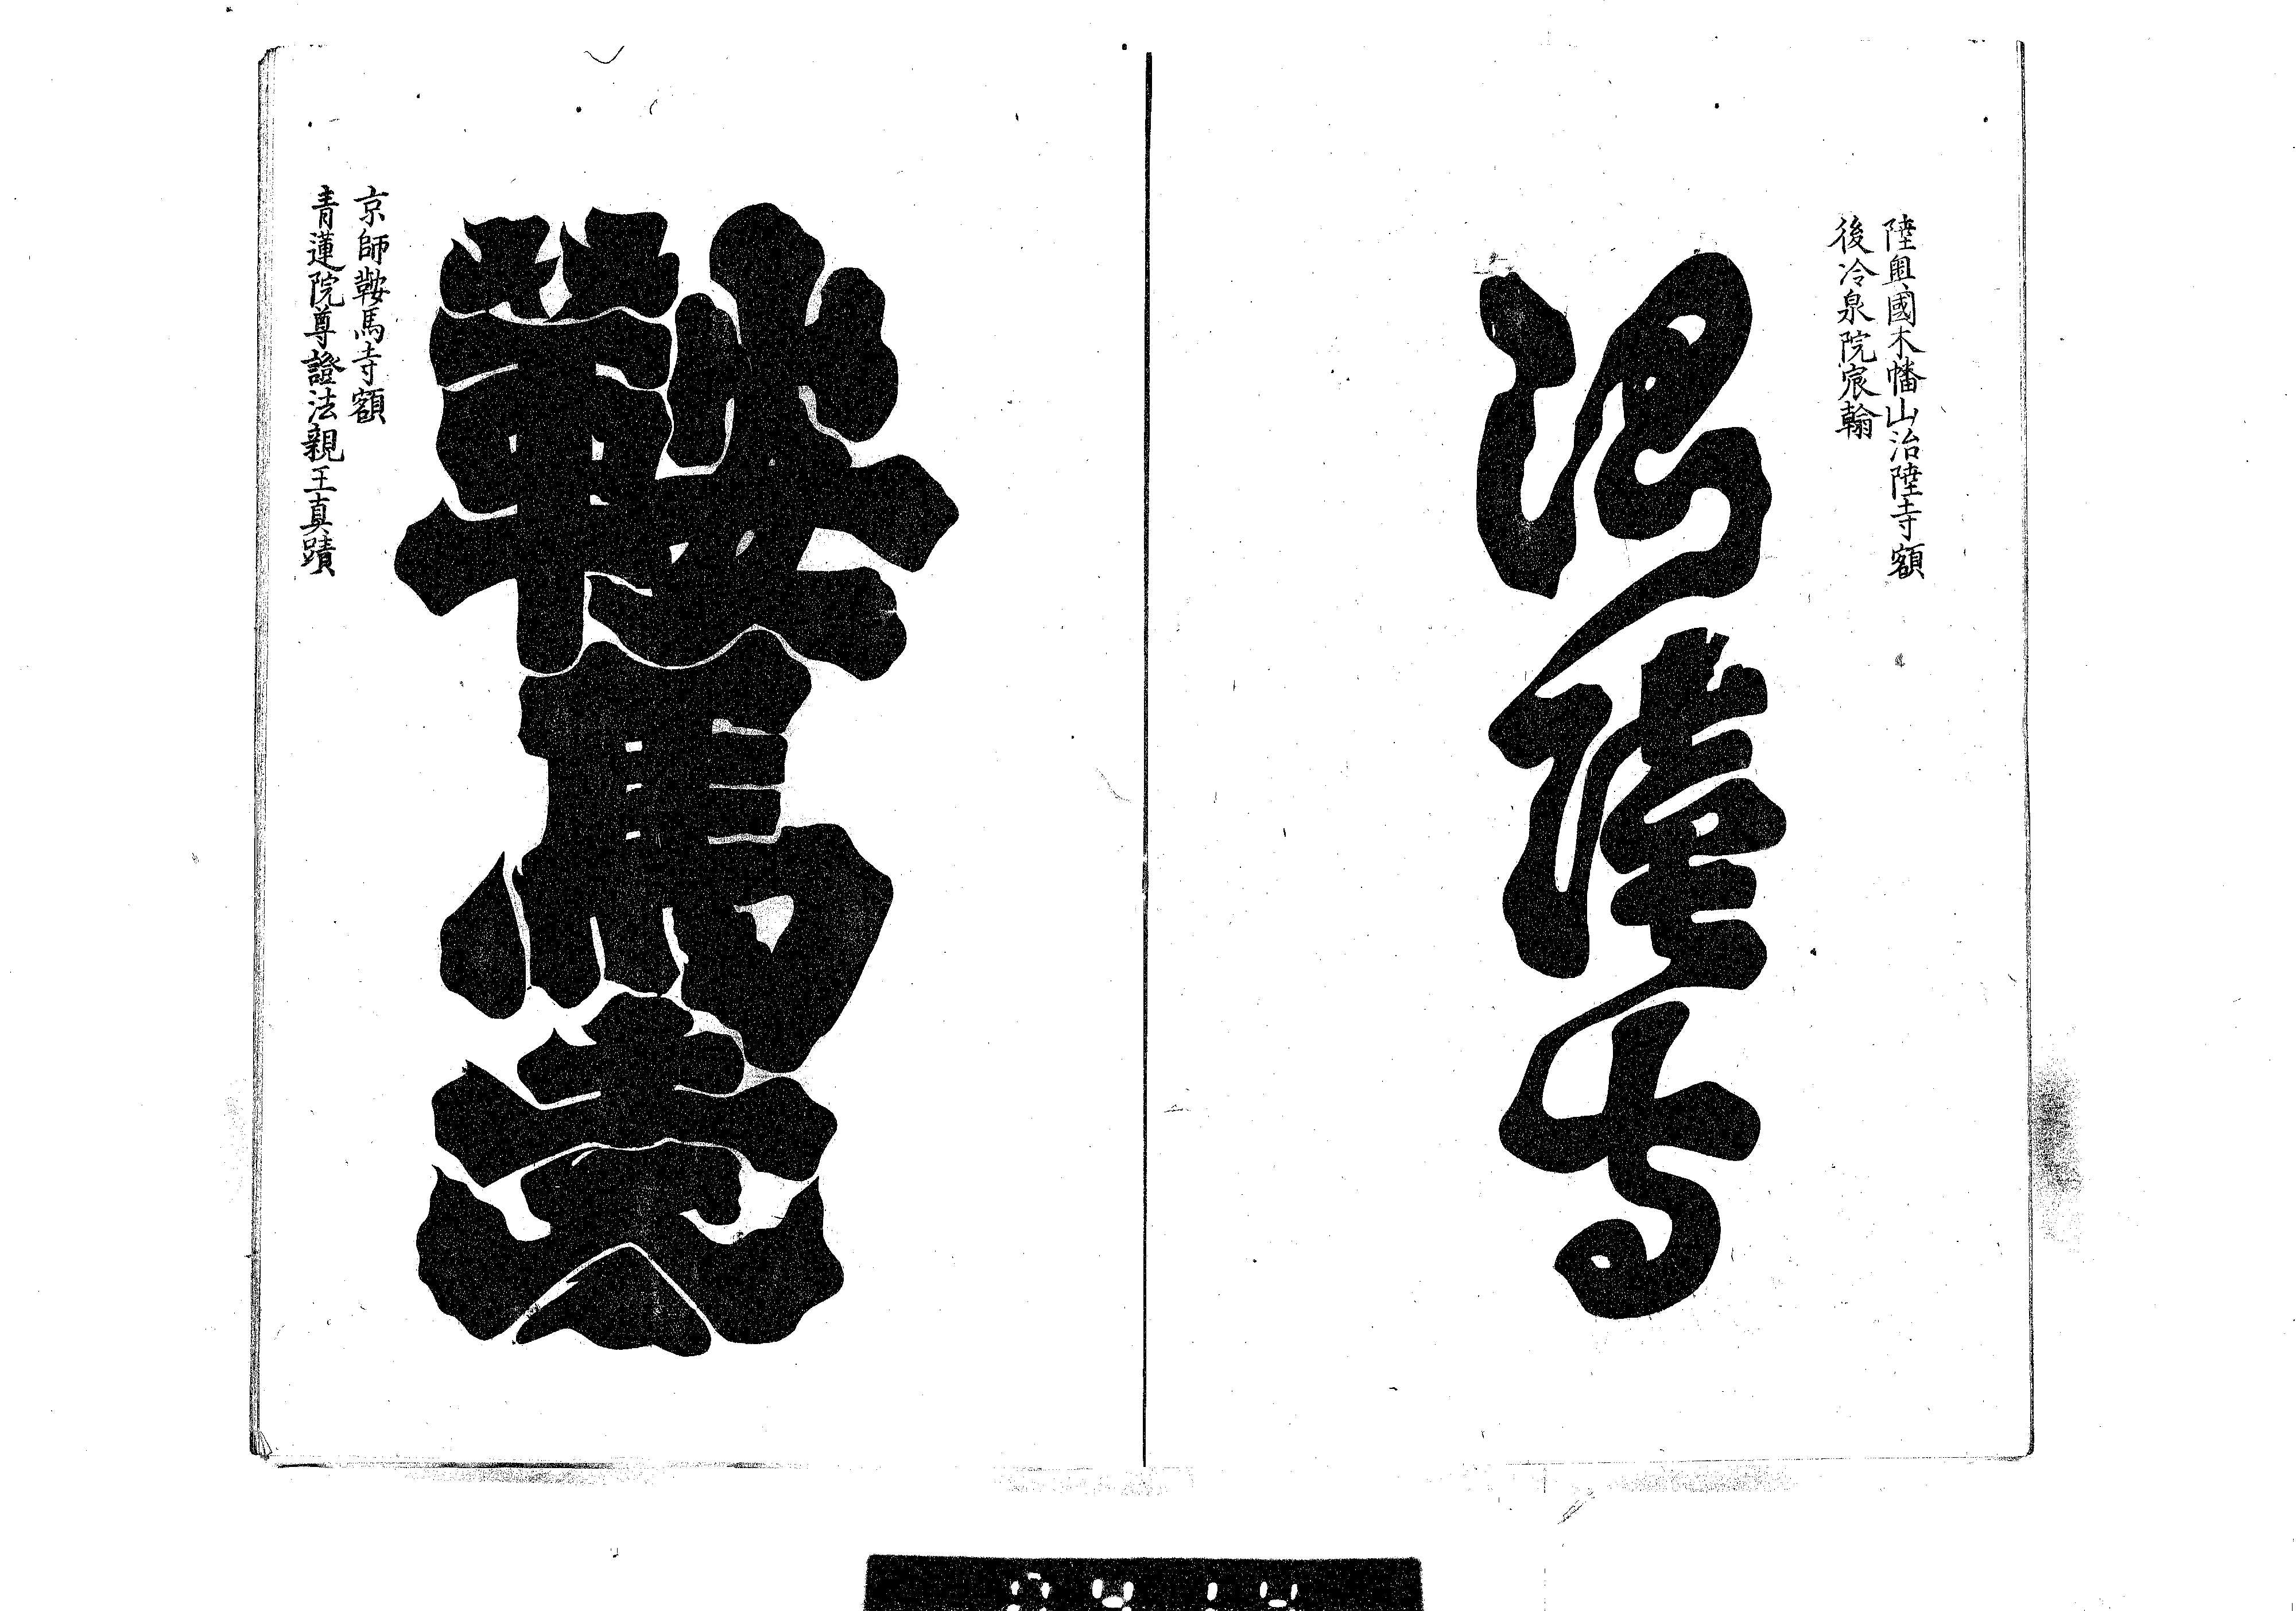 陸奥國木幡山治陸寺額
後冷泉院宸翰
治陸寺
京師鞍馬寺額
青蓮院尊證法親王真蹟
鞍馬寺